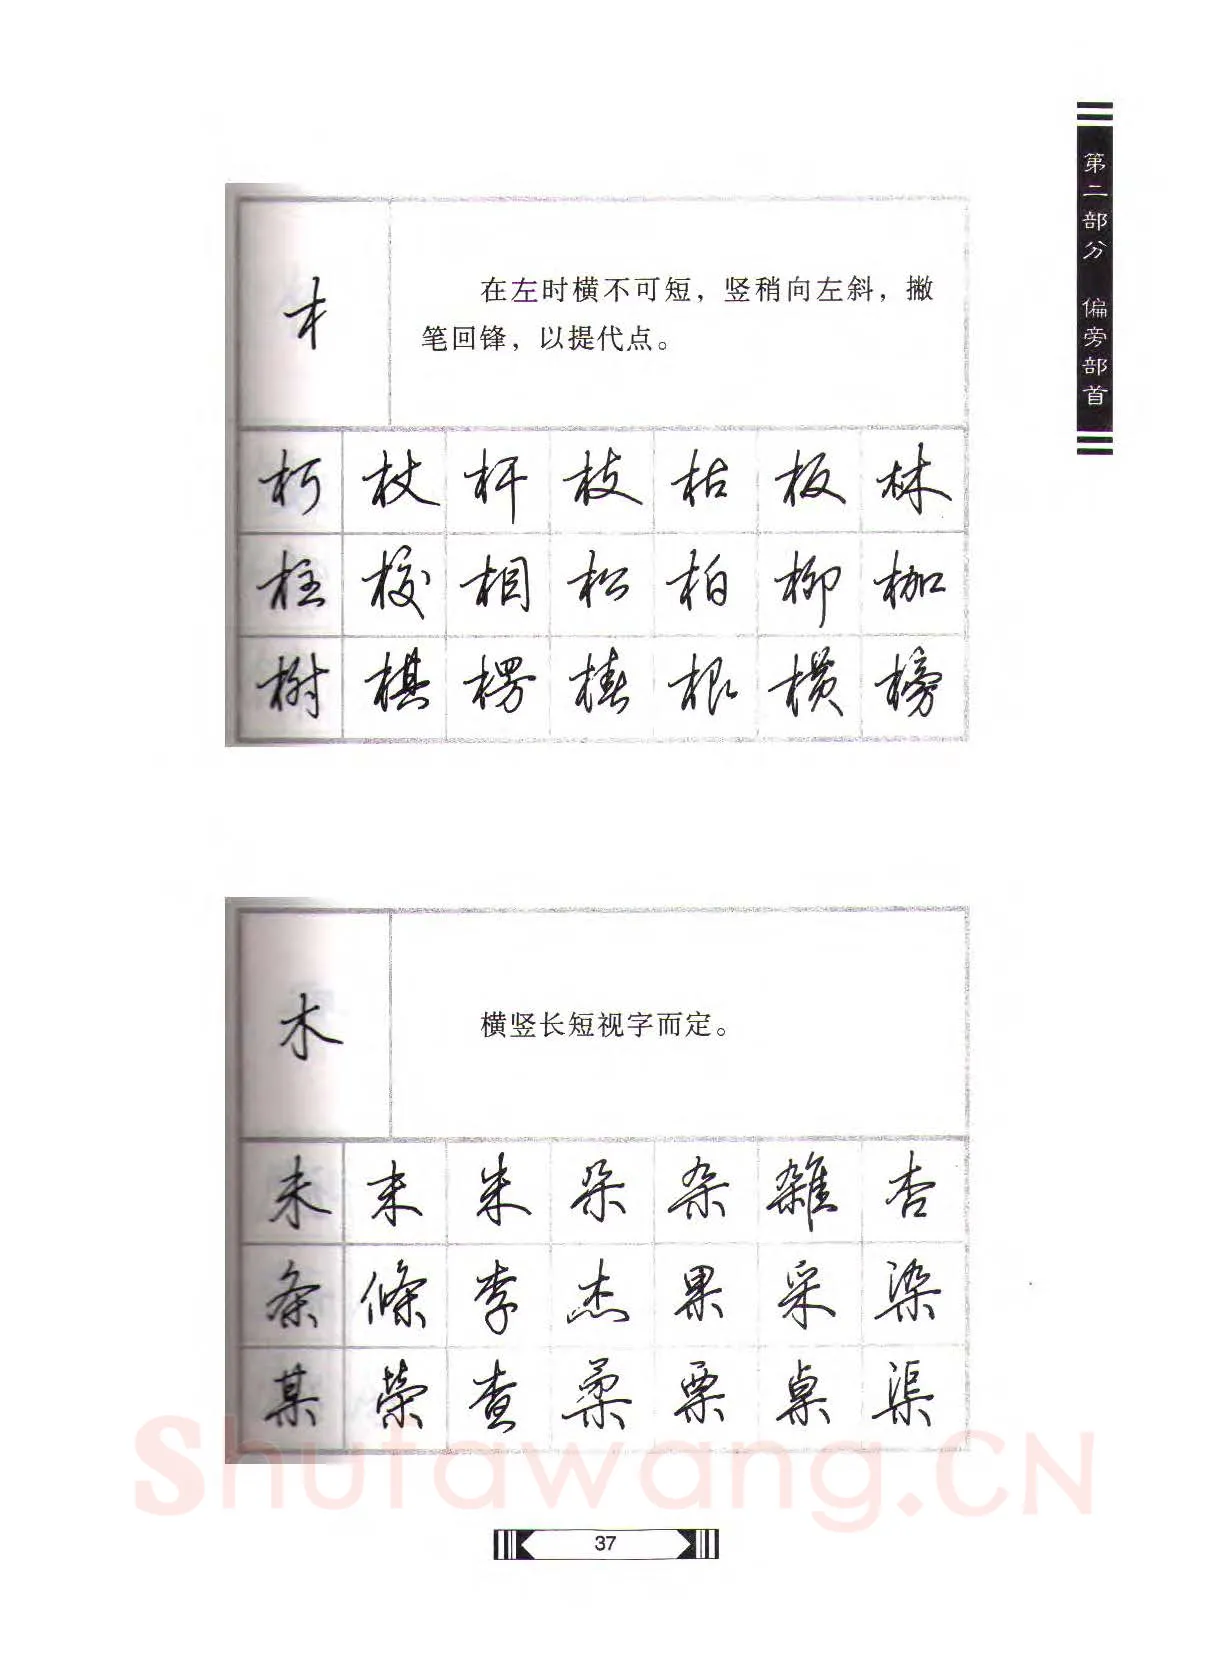 第二部分 偏旁部首
木
在左时横不可短，竖稍向左斜，撇
笔回锋，以提代点。
朽 杖 杆 枝 枯 板 林
柱 校 相 松 柏 柳 枷
树 棋 楞 椿 根 横 榜
木
横竖长短视字而定。
未 末 朱 朵 杂 雜 杏
条 條 李 杰 果 采 染
某 榮 查 柔 栗 桌 渠
Shufawang.CN
37